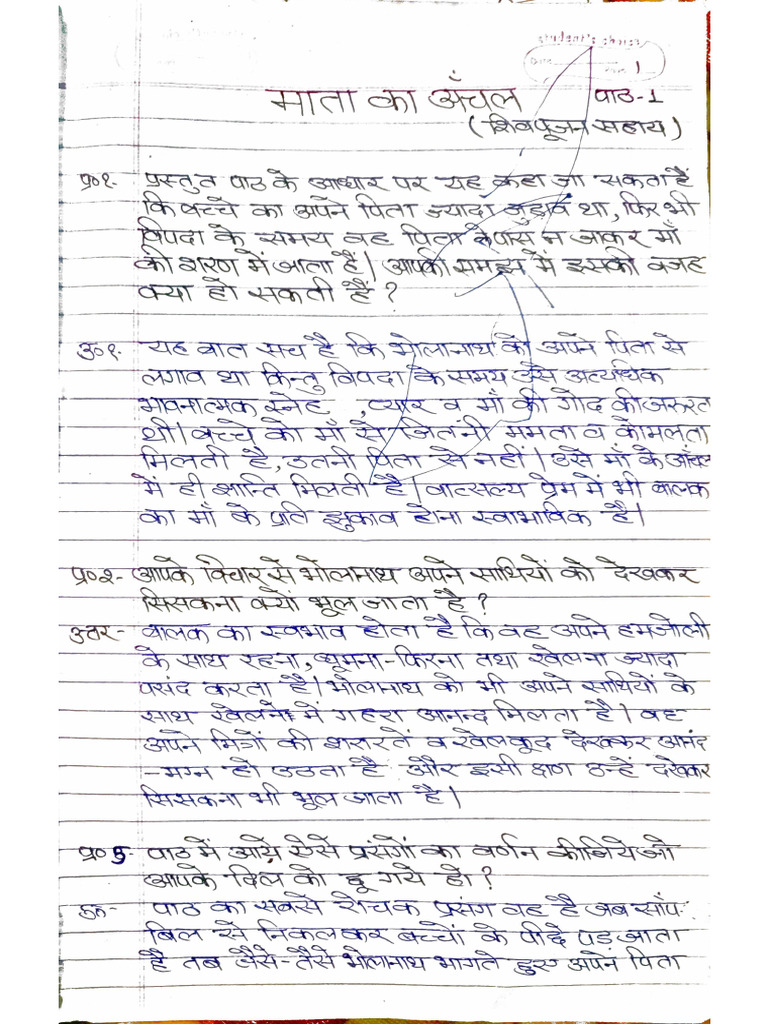 माता का अँचल पाठ-1
(शिवपूजन सहाय)
प्र०१- प्रस्तुत पाठ के आधार पर यह कहा जा सकता है
कि बच्चे का अपने पिता ज्यादा जुड़ाव था, फिर भी
विपदा के समय वह पिता के पास न जाकर माँ
की शरण में जाता है। आपकी समझ में इसकी वजह
क्या हो सकती है?
उ०१- यह बात सच है कि भोलानाथ को अपने पिता से
लगाव था किन्तु विपदा के समय उसे अत्यधिक
भावनात्मक स्नेह , प्यार व माँ की गोद की जरुरत
थी। बच्चे को माँ से जितनी ममता व कोमलता
मिलती है, उतनी पिता से नहीं। उसे माँ के आंचल
में ही शान्ति मिलती है। वात्सल्य प्रेम में भी बालक
का माँ के प्रति झुकाव होना स्वाभाविक है।
प्र०२- आपके विचार से भोलानाथ अपने साथियों को देखकर
सिसकना क्यों भूल जाता है?
उत्तर- बालक का स्वभाव होता है कि वह अपने हमजोली
के साथ रहना, घूमना-फिरना तथा खेलना ज्यादा
पसंद करता है। भोलानाथ को भी अपने साथियों के
साथ खेलने में गहरा आनन्द मिलता है। वह
अपने मित्रों की शरारतें व खेलकूद देखकर आनंद
-मग्न हो उठता है और इसी क्षण उन्हें देखकर
सिसकना भी भूल जाता है।
प्र० 5- पाठ में आये ऐसे प्रसंगों का वर्णन कीजिये जो
आपके दिल को छू गये हों?
उ०- पाठ का सबसे रोचक प्रसंग वह है जब साँप
बिल से निकलकर बच्चों के पीछे पड़ जाता
है तब जैसे-तैसे भोलानाथ भागते हुए अपने पिता